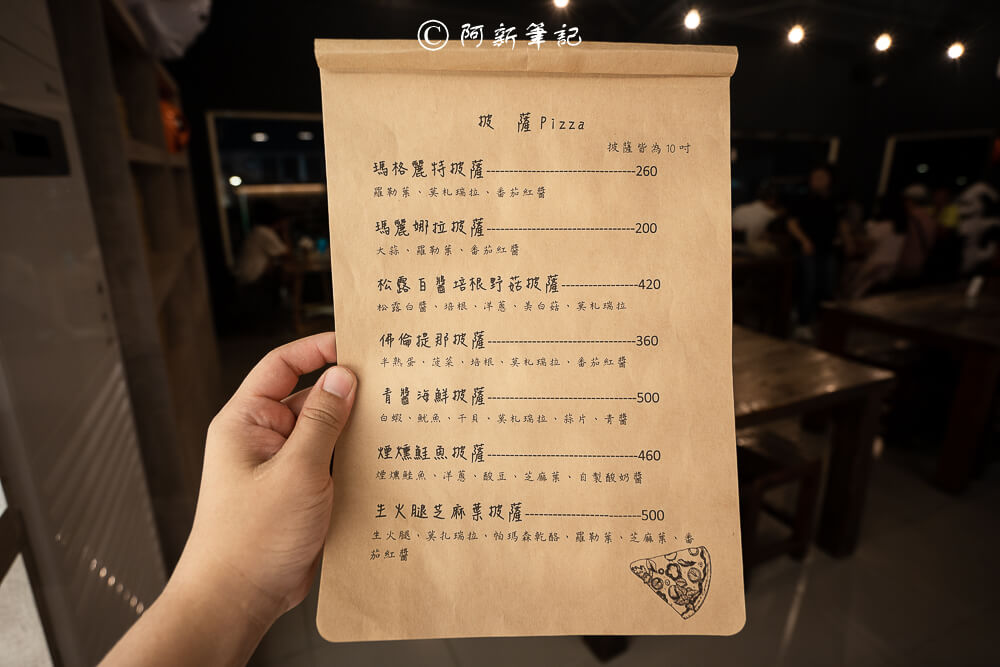 © 阿新筆記
披 薩 Pizza
披薩皆為10吋
瑪格麗特披薩--------------------------------260
羅勒葉、莫札瑞拉、番茄紅醬
瑪麗娜拉披薩--------------------------------200
大蒜、羅勒葉、番茄紅醬
松露白醬培根野菇披薩----------------420
松露白醬、培根、洋蔥、美白菇、莫札瑞拉
佛倫提那披薩--------------------------------360
半熟蛋、菠菜、培根、莫札瑞拉、番茄紅醬
青醬海鮮披薩--------------------------------500
白蝦、魷魚、干貝、莫札瑞拉、蒜片、青醬
煙燻鮭魚披薩--------------------------------460
煙燻鮭魚、洋蔥、酸豆、芝麻葉、自製酸奶醬
生火腿芝麻葉披薩-------------------------500
生火腿、莫扎瑞拉、帕瑪森乾酪、羅勒葉、芝麻葉、番
茄紅醬